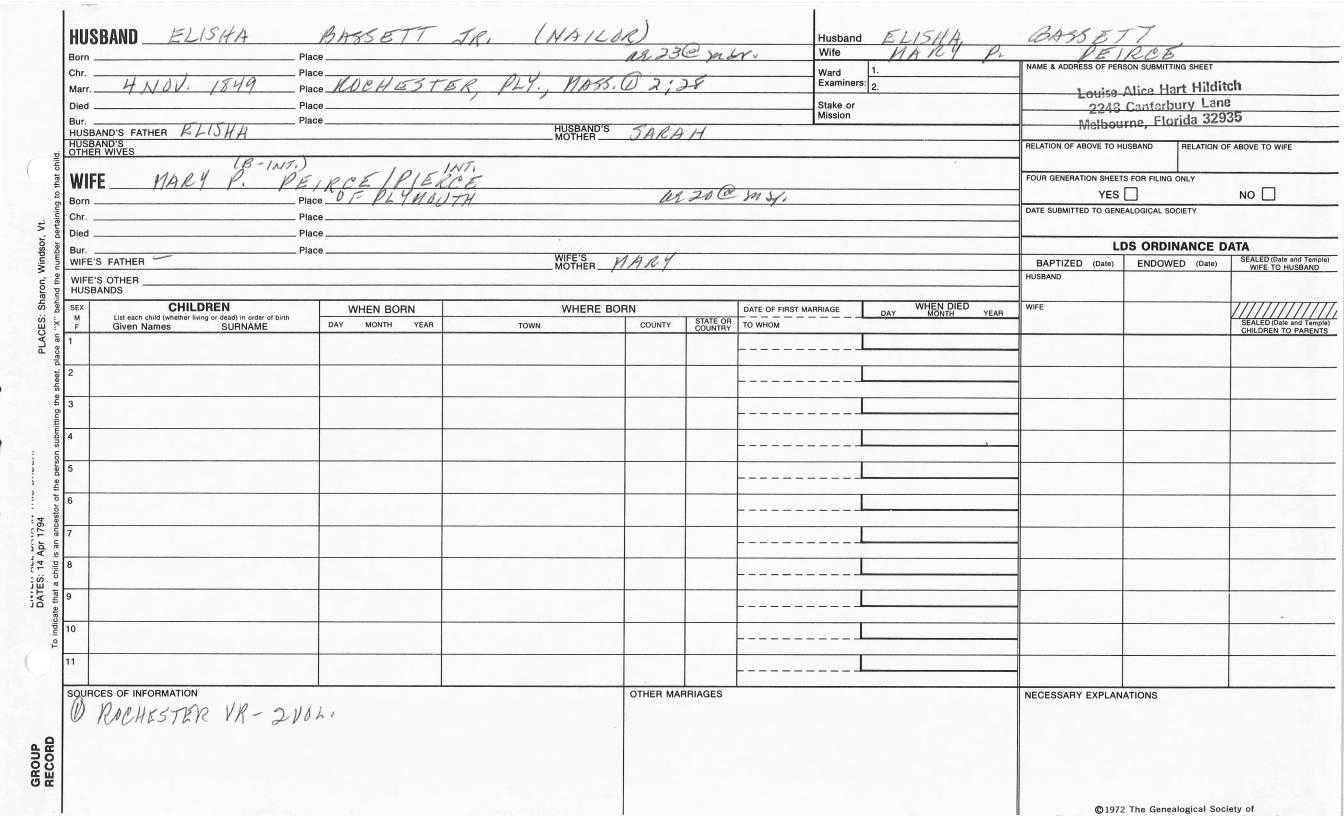 HUSBAND ELISHA BASSETT JR. (NAILOR)
Born Place ae 23 @ mar.
Chr. Place
Marr. 4 NOV. 1849 Place ROCHESTER, PLY., MASS. ① 2;28
Died Place
Bur. Place
HUSBAND'S FATHER ELISHA HUSBAND'S MOTHER SARAH
HUSBAND'S OTHER WIVES
(B-INT.) INT.
WIFE MARY P. PEIRCE/PIERCE
Born Place OF PLYMOUTH ae 20 @ mr.
Chr. Place
Died Place
Bur. Place
WIFE'S FATHER — WIFE'S MOTHER MARY
WIFE'S OTHER HUSBANDS
Husband ELISHA BASSETT
Wife MARY P. PEIRCE
Ward Examiners: 1.
2.
Stake or Mission
NAME & ADDRESS OF PERSON SUBMITTING SHEET
Louise Alice Hart Hilditch
2248 Canterbury Lane
Melbourne, Florida 32935
RELATION OF ABOVE TO HUSBAND RELATION OF ABOVE TO WIFE
FOUR GENERATION SHEETS FOR FILING ONLY
YES NO
DATE SUBMITTED TO GENEALOGICAL SOCIETY
LDS ORDINANCE DATA
BAPTIZED (Date) ENDOWED (Date) SEALED (Date and Temple) WIFE TO HUSBAND
HUSBAND
WIFE
SEALED (Date and Temple) CHILDREN TO PARENTS
SEX M F
CHILDREN
List each child (whether living or dead) in order of birth
Given Names SURNAME
WHEN BORN
DAY MONTH YEAR
WHERE BORN
TOWN COUNTY STATE OR COUNTRY
DATE OF FIRST MARRIAGE
TO WHOM
WHEN DIED
DAY MONTH YEAR
1
2
3
4
5
6
7
8
9
10
11
SOURCES OF INFORMATION
① ROCHESTER VR - 2 VOL.
OTHER MARRIAGES
NECESSARY EXPLANATIONS
©1972 The Genealogical Society of
GROUP RECORD
DATES: 14 Apr 1794
PLACES: Sharon, Windsor, Vt.
To indicate that a child is an ancestor of the person submitting the sheet, place an "X" behind the number pertaining to that child.